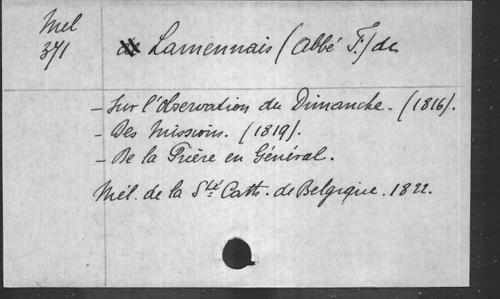 Mel
371
Lamennais (Abbé F.) de
- Sur l'Observation du Dimanche. (1816).
- Des Missions. (1819).
- De la Prière en Général.
Mél. de la Sté Cath. de Belgique. 1822.